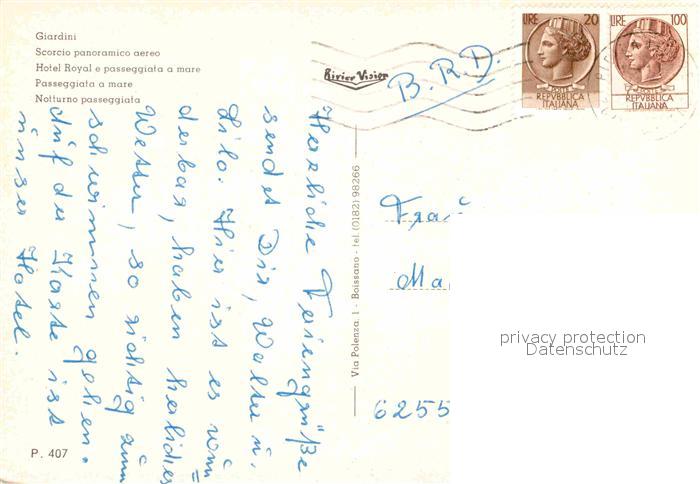 Giardini
Scorcio panoramico aereo
Hotel Royal e passeggiata a mare
Passeggiata a mare
Notturno passeggiata
Rivier Vision
B.R.D.
LIRE 20
POSTE
REPVBBLICA
ITALIANA
LIRE 100
POSTE
REPVBBLICA
ITALIANA
Herzliche Feriengrüße
sendet Dir, Walter u.
Lilo. Hier ist es wun
derbar, haben herliches
Wetter, so richtig zum
schwimmen gehen.
Auf der Karte ist
unser Hotel.
Via Polenza, 1 - Boissano - tel. (0182) 98266
Frau
Ma
6255
privacy protection
Datenschutz
P. 407